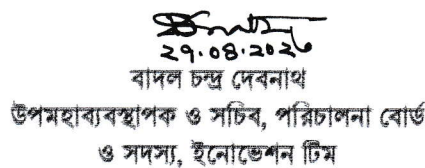 ২৭.০৪.২০২৬
বাদল চন্দ্র দেবনাথ
উপমহাব্যবস্থাপক ও সচিব, পরিচালনা বোর্ড
ও সদস্য, ইনোভেশন টিম